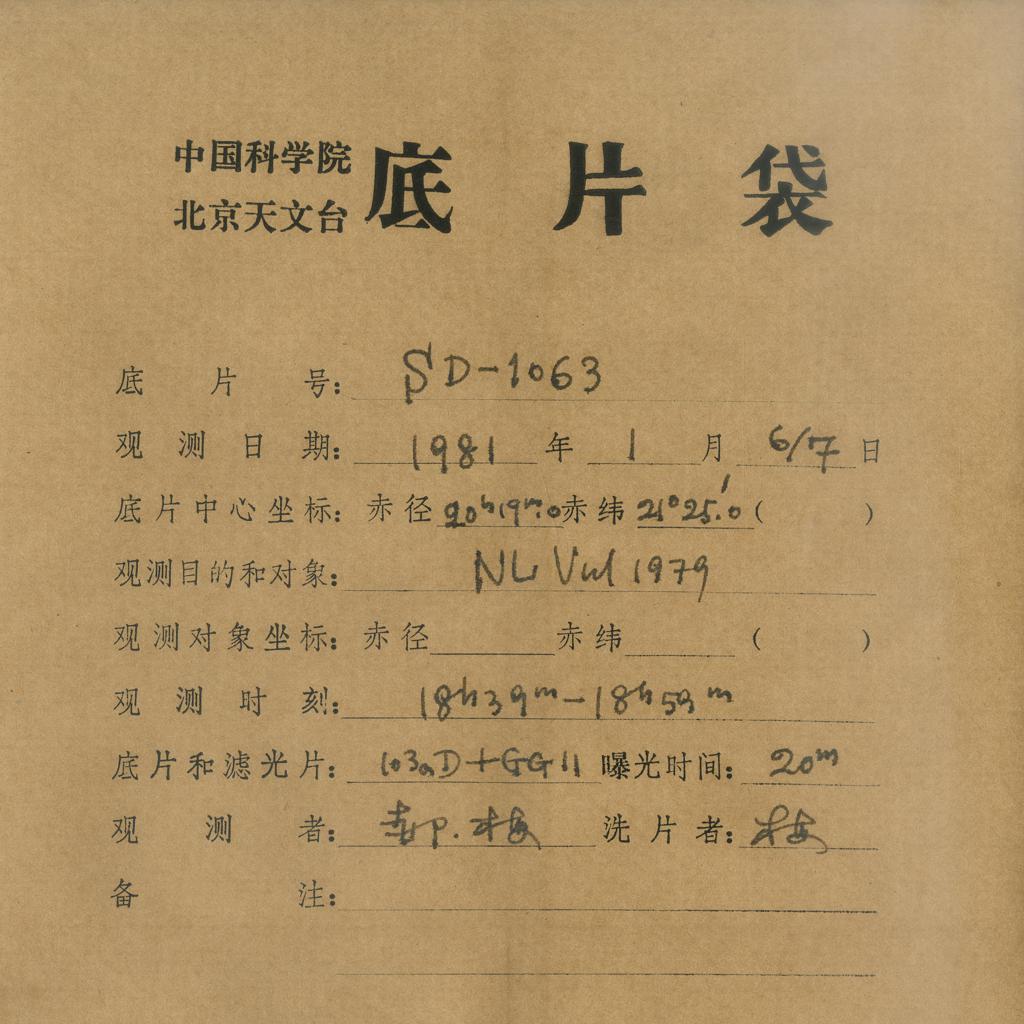 中国科学院
北京天文台
底片袋
底片号: SD-1063
观测日期: 1981 年 1 月 6/7 日
底片中心坐标: 赤径 20h19m.0 赤纬 21°25'.0 ( )
观测目的和对象: NL Vul 1979
观测对象坐标: 赤径 赤纬 ( )
观测时刻: 18h39m-18h59m
底片和滤光片: 103aD+GG11 曝光时间: 20m
观测者: 郝. 梅 洗片者: 梅
备注: